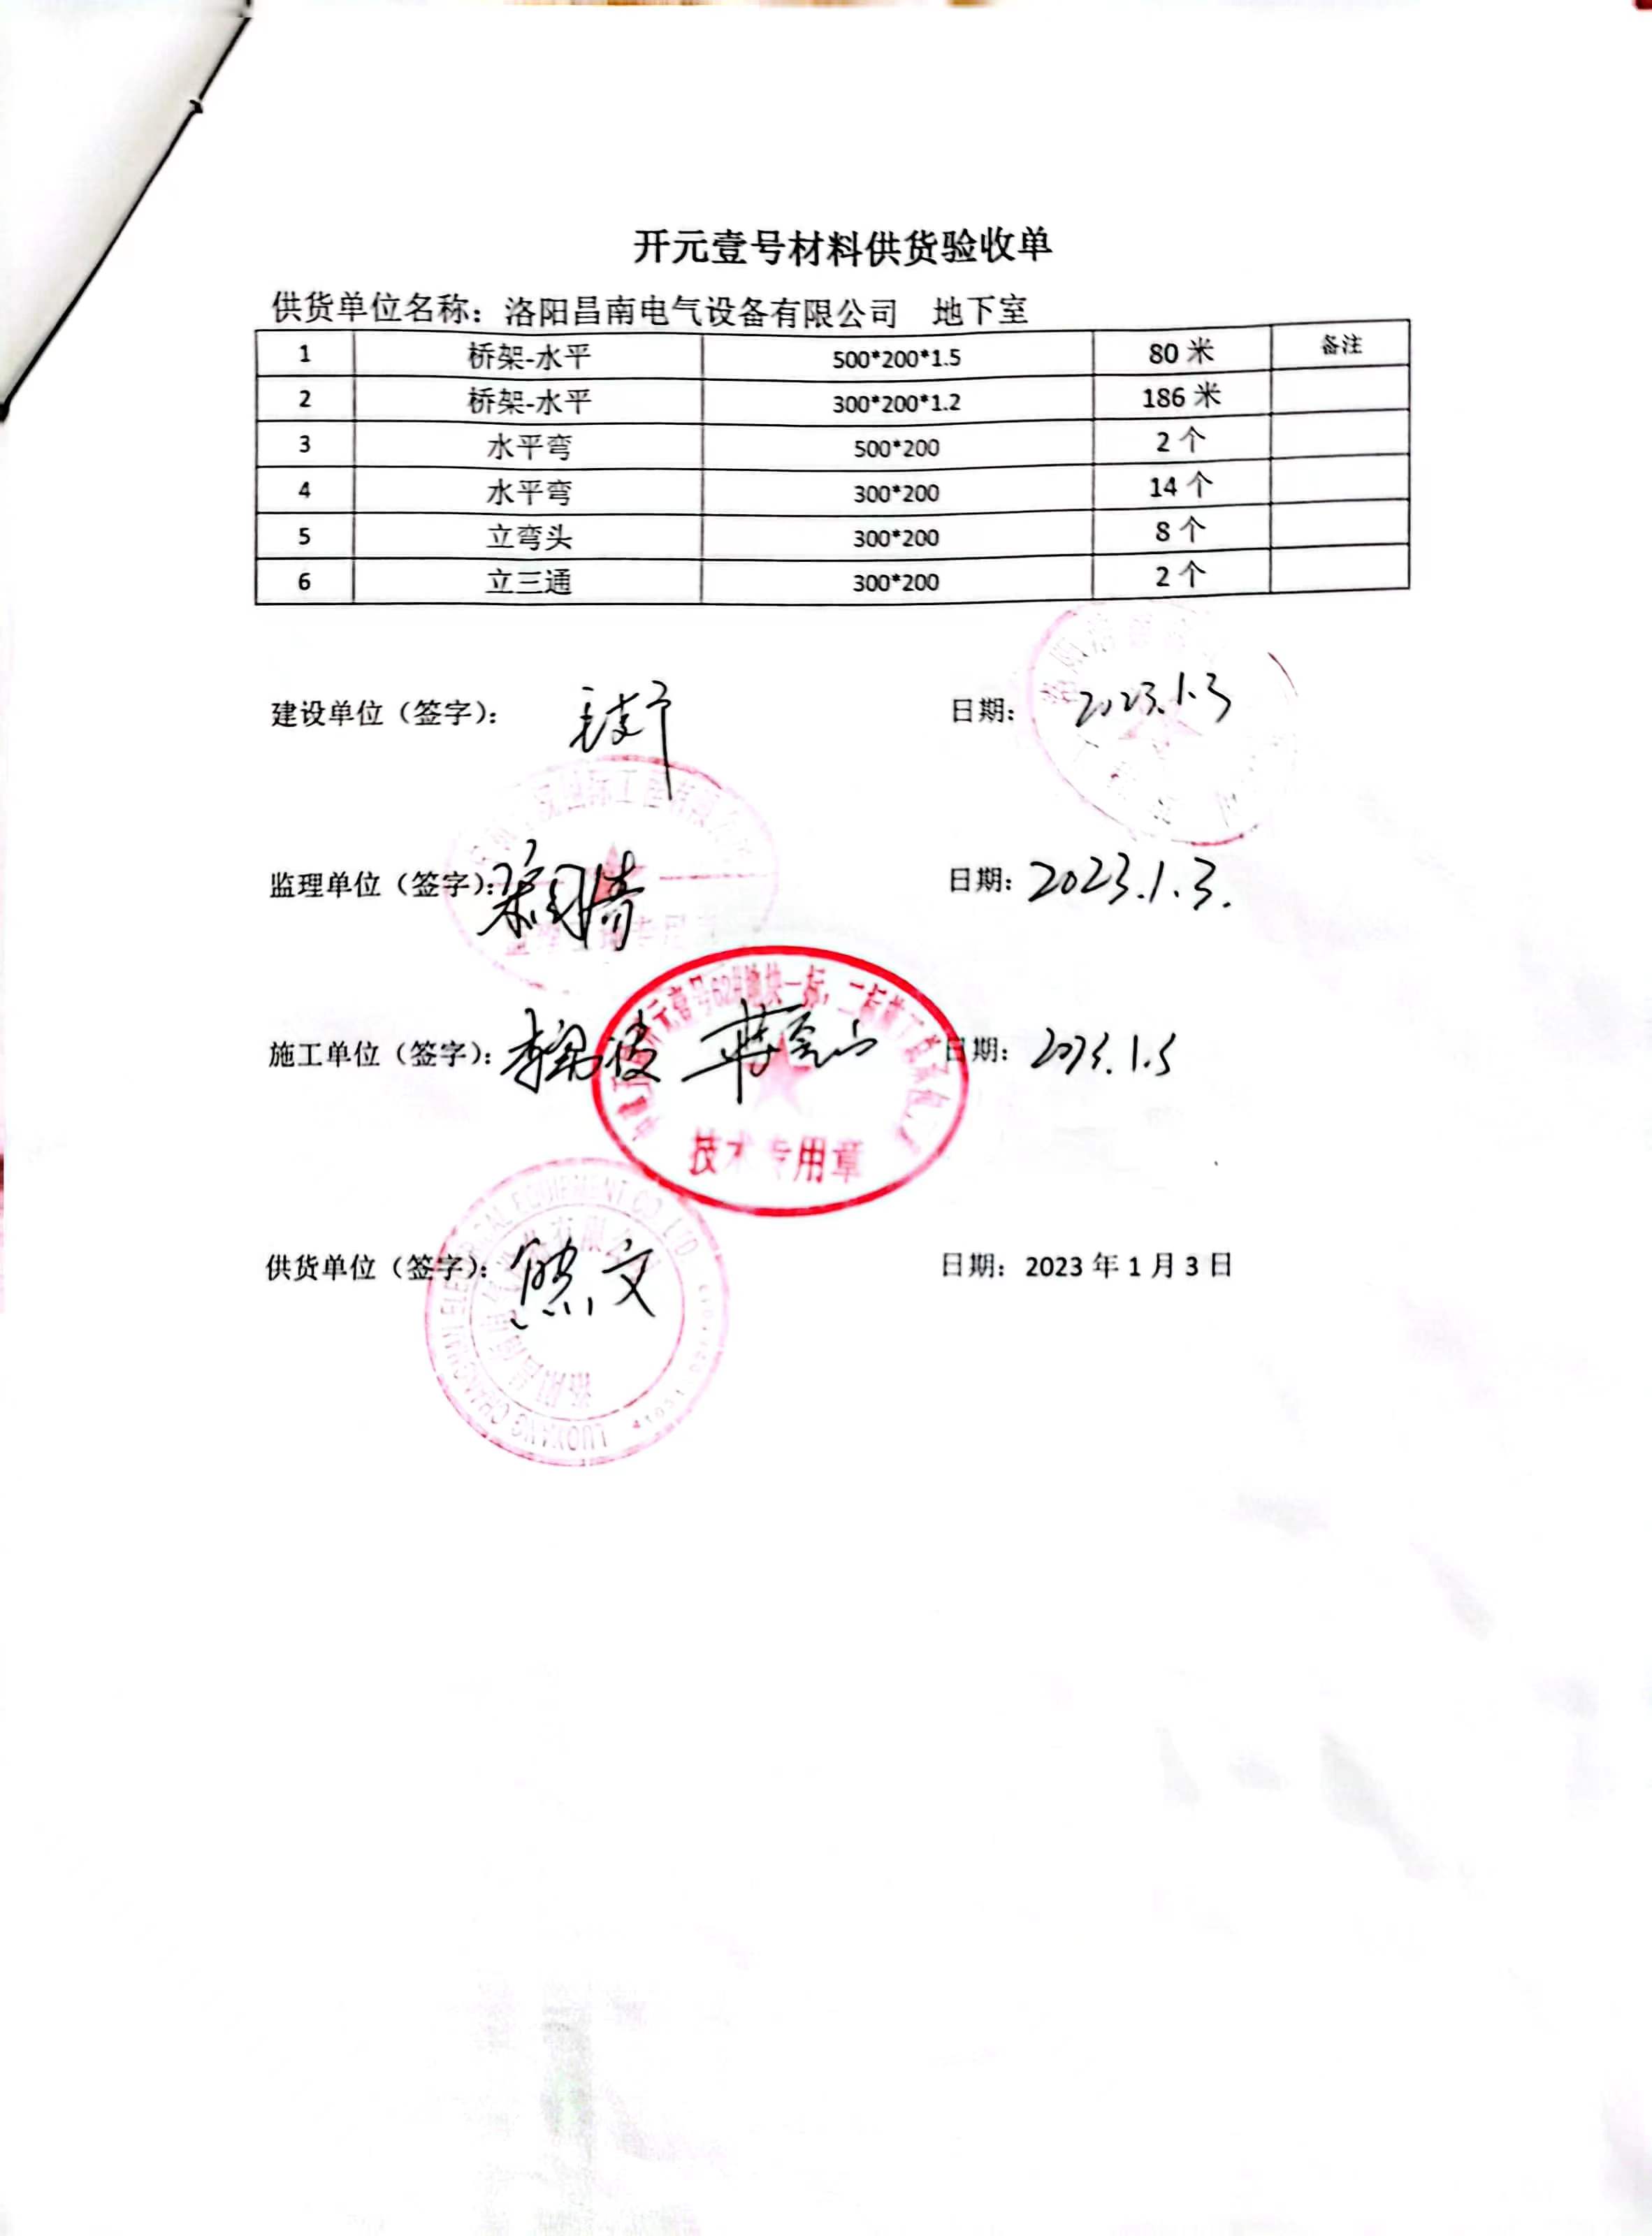 开元壹号材料供货验收单
供货单位名称：洛阳昌南电气设备有限公司 地下室
1 桥架-水平 500*200*1.5 80 米 备注
2 桥架-水平 300*200*1.2 186 米
3 水平弯 500*200 2 个
4 水平弯 300*200 14 个
5 立弯头 300*200 8 个
6 立三通 300*200 2 个
建设单位（签字）： 日期： 2023.1.3
监理单位（签字）： 日期： 2023.1.3.
施工单位（签字）： 日期：
技术专用章
供货单位（签字）： 熊文 日期：2023 年 1 月 3 日